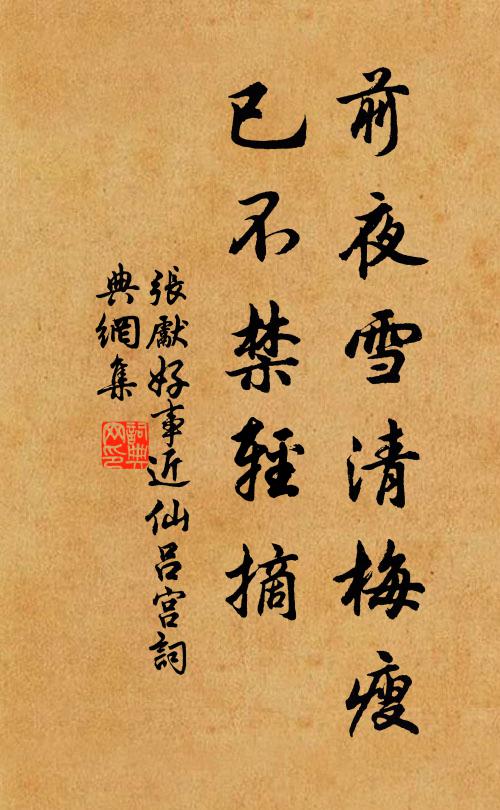 前夜雪清梅瘦
已不禁輕摘
張獻好事近仙呂宮詞
典網集
詞典
网印